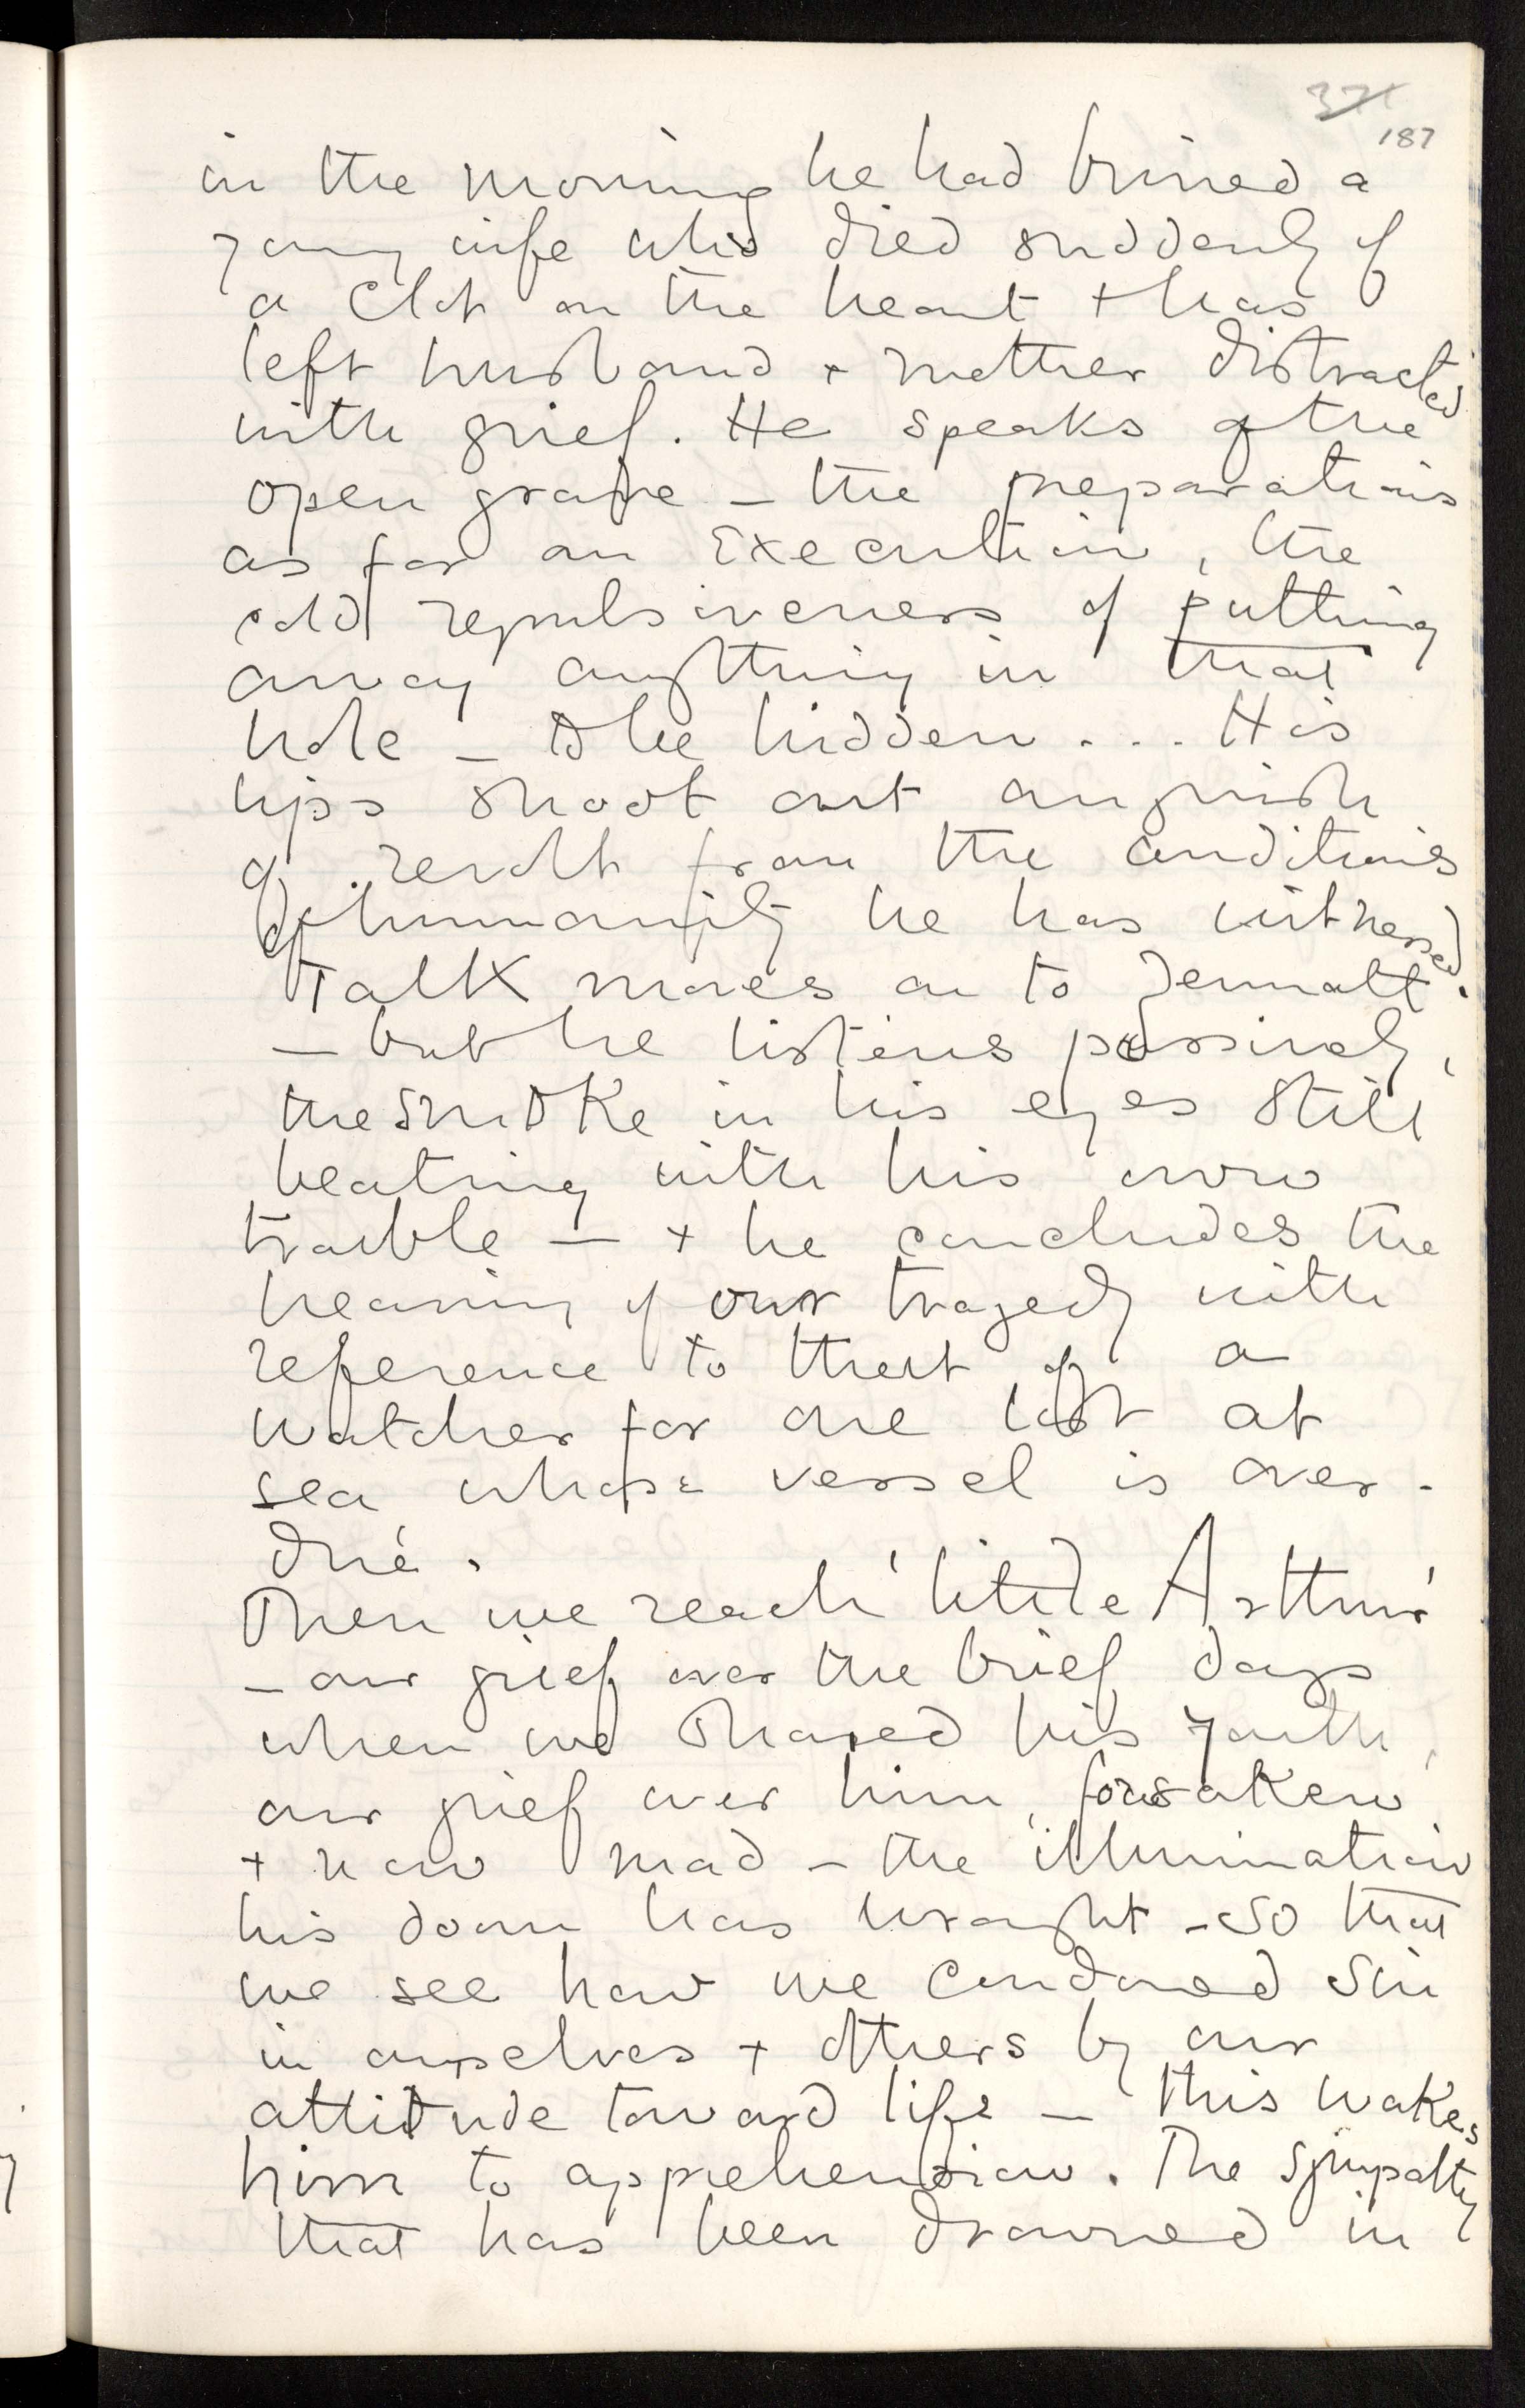 371
187
in the morning he had buried a
young wife who died suddenly of
a clot on the heart + has
left husband + mother distracted
with grief. He speaks of the
open grave – the preparations
as for an Execution, the
cold repulsiveness of putting
away anything in that
hole – to be hidden ... His
lips shoot out anguish
of revolt from the conditions
of humanity he has witnessed.
Talk moves on to Zermatt
– but he listens passively,
the smoke in his eyes still
beating with his own
trouble – + he concludes the
hearing of our tragedy with
reference to that of a
watcher for one lost at
sea whose vessel is over-
due.
Then we reach 'little Arthur'
– our grief over the brief days
when we shared his youth,
our grief over him, forsaken
+ now mad – the illumination
his doom has brought – so that
we see how we condoned sin
in ourselves + others by our
attitude toward life – this wakes
him to apprehension. The sympathy
that has been drowned in